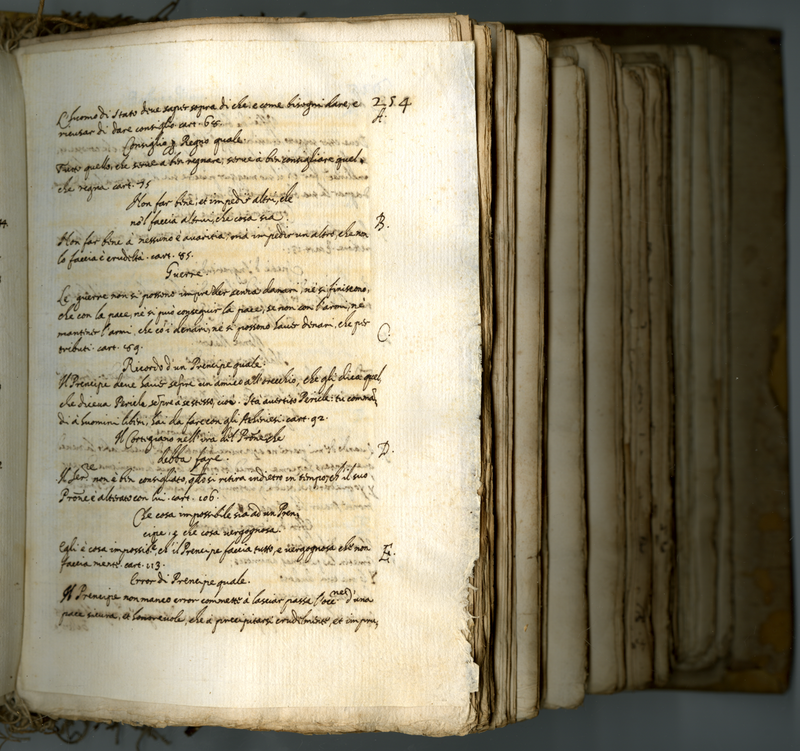 L'huomo di stato deve saper sopra di che, e come bisogni dare, e 254
ricusar di dare consiglio. cart. 68. A.
Consiglio Regio quale.
Tutto quello, che serve à ben regnare, serve à ben consigliare quel,
che regna cart. 75
Non far bene, et impedir altri, che
no'l faccia altrui, che cosa sia.
Non far bene à nessuno è avaritia, mà impedir un altro, che non B.
lo faccia è crudeltà. cart. 85.
Guerre
Le guerre non si possono imprender senza danari, nè si finiscono,
che con la pace, nè si può conseguir la pace, se non con l'armi, nè
mantener l'armi, che cò i denari, nè si possono haver denari, che per C.
tributi. cart. 89.
Ricordo d'un Prencipe quale.
Il Prencipe deve haver sempre un amico all'orecchio, che gli dica quel,
che diceva Pericle sempre à se stesso, cioè. Stà avertito Pericle: tu comma,
di à huomini liberi, hai da fare con gli Atheniesi. cart. 92.
Il Cortigiano nell'ira del Prone che
debba fare. D.
Il Serre non è ben consigliato, si retira indietro in tempo, ch'il suo
Prone è alterato con lui. cart. 106.
Che cosa impossibile sia ad un Pren,
cipe, e che cosa vergognosa.
Egli è cosa impossible, ch'il Prencipe faccia tutto, e vergognosa che non E.
faccia niente. cart. 113.
Error di Prencipe quale.
Il Prencipe non manco error commette à lasciar passar l'occne d'una
pace sicura, et honorevole, che à precipitarsi crudelmente, et impru,